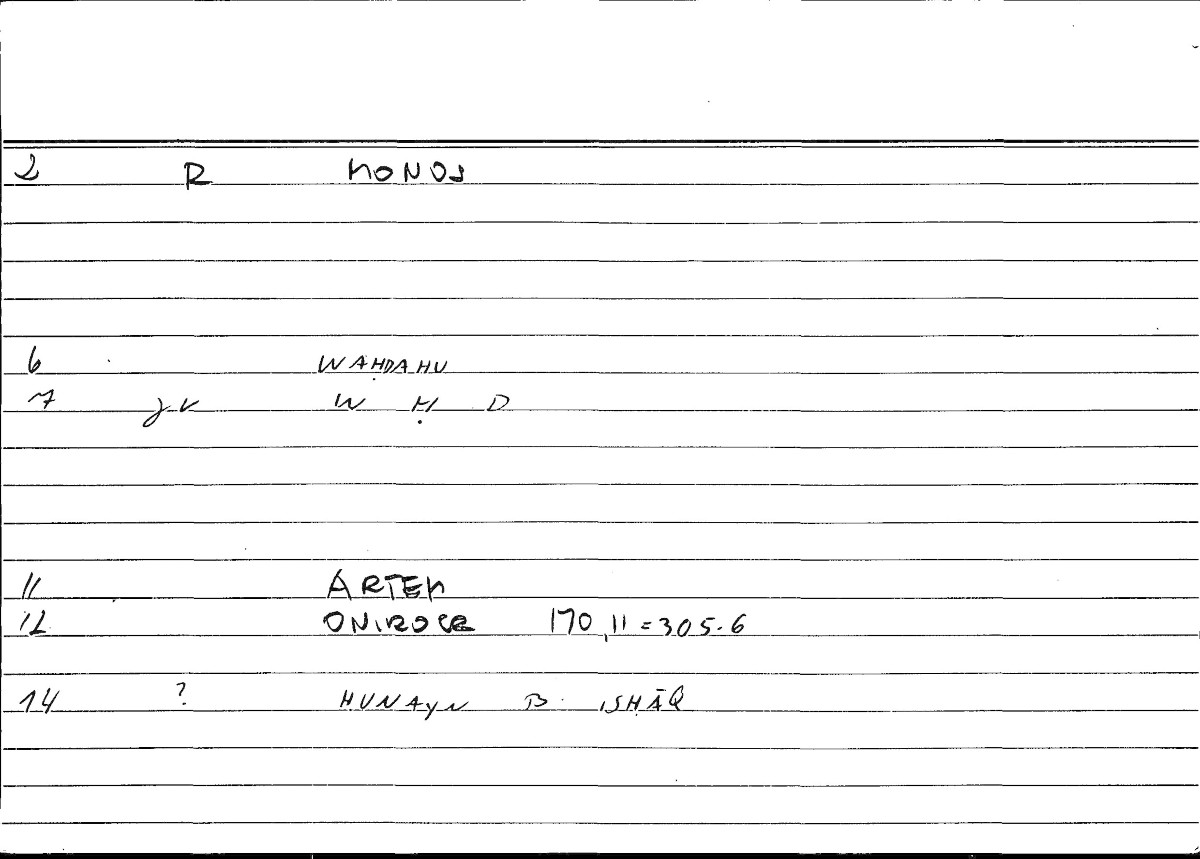 2 R MONOS
6 WAḤDAHU
7 JK W Ḥ D
11 ARTEM
12 ONIROCR 170,11=305.6
14 ? HUNAYN B. ISḤĀQ